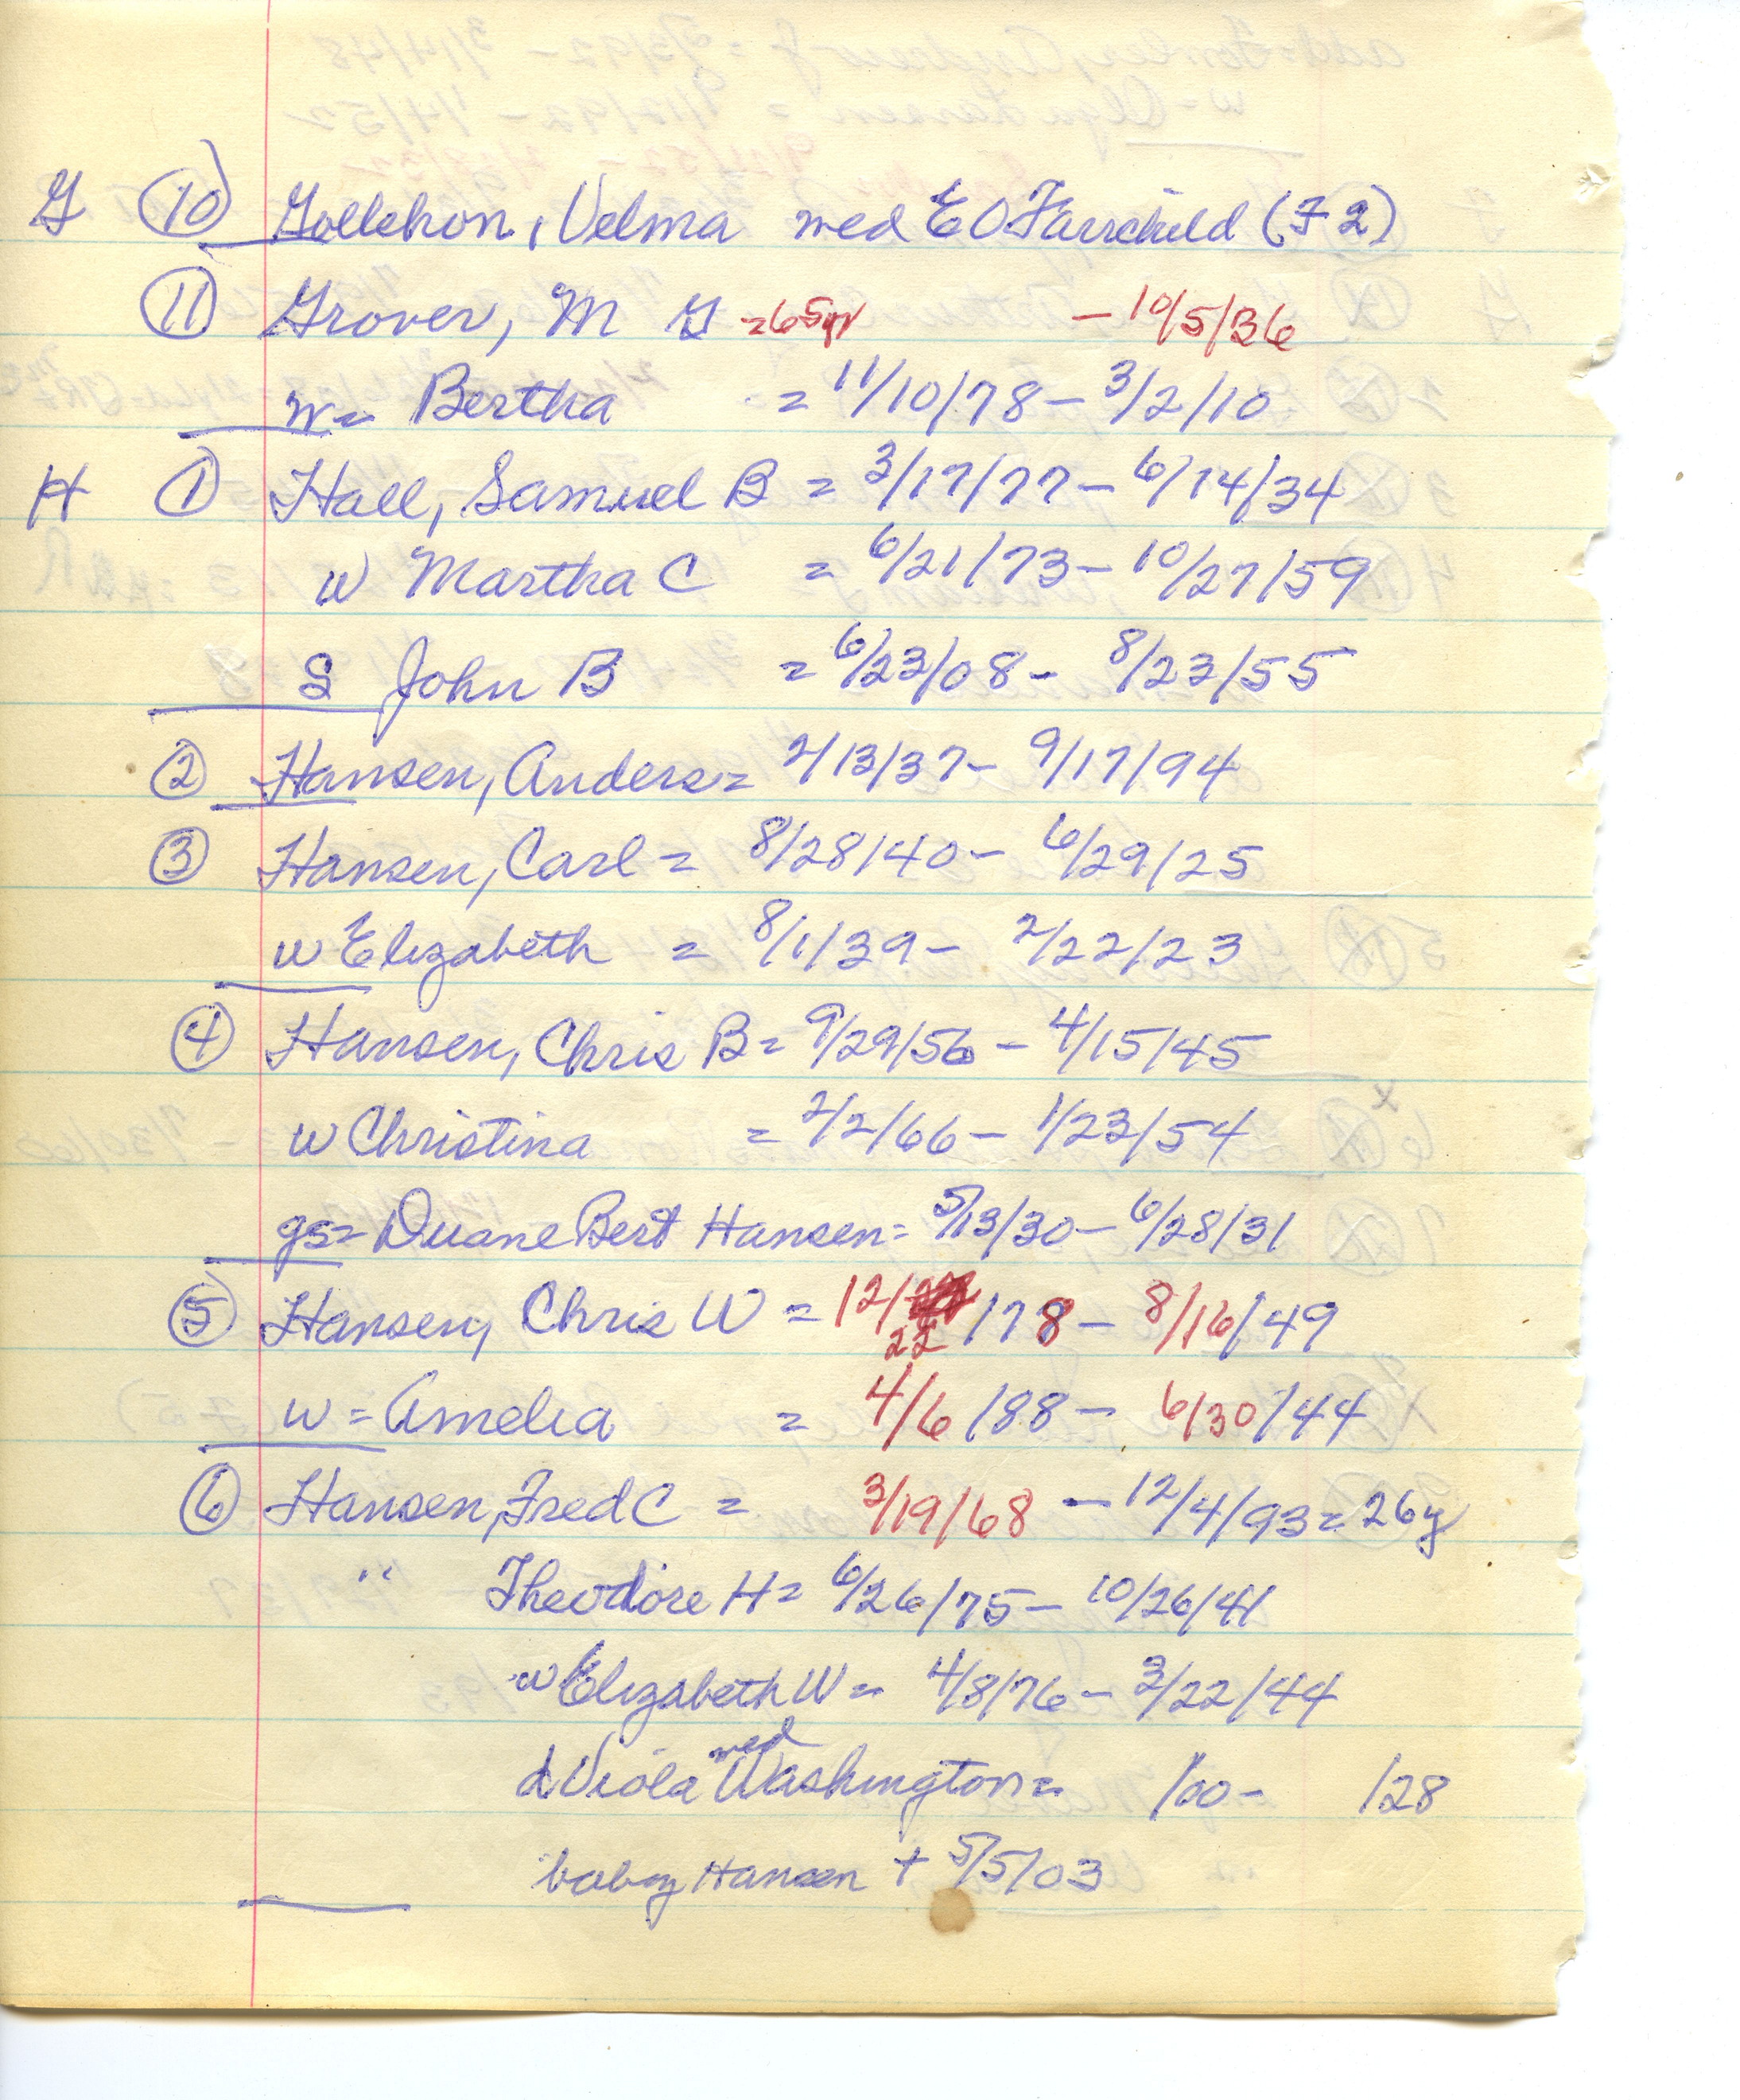 G (10) Gollehon, Velma wed E O Fairchild (F 2)
(11) Grover, M G =65yr - 10/5/36
w= Bertha = 11/10/78 - 3/2/10
H (1) Hall, Samuel B = 3/17/77 - 6/14/34
w Martha C = 6/21/73 - 10/27/59
S John B = 6/23/08 - 8/23/55
(2) Hansen, Anders = 2/13/37 - 9/17/94
(3) Hansen, Carl = 8/28/40 - 6/29/25
w Elizabeth = 8/1/39 - 2/22/23
(4) Hansen, Chris B = 9/29/56 - 4/15/45
w Christina = 2/2/66 - 1/23/54
gs= Duane Bert Hansen = 5/13/30 - 6/28/31
(5) Hansen, Chris W = 12/22/78 - 8/16/49
w = Amelia = 4/6/88 - 6/30/44
(6) Hansen, Fred C = 3/19/68 - 12/4/93 = 26y
" Theodore H = 6/26/75 - 10/26/41
w Elizabeth W = 4/8/76 - 3/22/44
d Viola wed Washington = /00 - /28
baby Hansen + 5/5/03